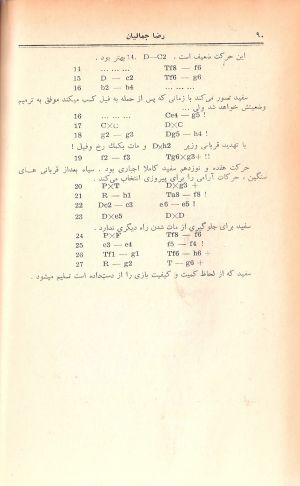 ۹۰ رضا جمالیان
این حرکت ضعیف است . D—C2 .14 بهتر بود .
14 ... ... ... Tf8 — f6
15 D — c2 Tf6 — g6
16 h2 — h4 ... ... ...
سفید تصور میکند با زمانی که پس از حمله به فیل کسب میکند موفق به ترمیم
وضعیتش خواهد شد ولی ...
16 ... ... ... Ce4 — g5 !
17 C×C D×C
18 g2 — g3 Dg5 — h4 !
با تهدید قربانی وزیر D×h2 و مات بکمک رخ وفیل !
19 f2 — f3 Tg6×g3+ !!
حرکت هفده و نوزدهم سفید کاملا اجباری بود . سیاه بعداز قربانی های
سنگین ، حرکات آرامی را برای پیروزی انتخاب می‌کند .
20 P×T D×g3 +
21 R — h1 Ta8 — f8 !
22 Dc2 — c3 e6 — e5 !
23 D×e5 D×D
سفید برای جلوگیری از مات شدن راه دیگری ندارد .
24 P×F Tf8 — f6
25 e3 — e4 f5 — f4 !
26 Tf1 — g1 Tf6 — h6 +
27 R — g2 T — g6 +
سفید که از لحاظ کمیت و کیفیت بازی را از دست‌داده است تسلیم میشود .